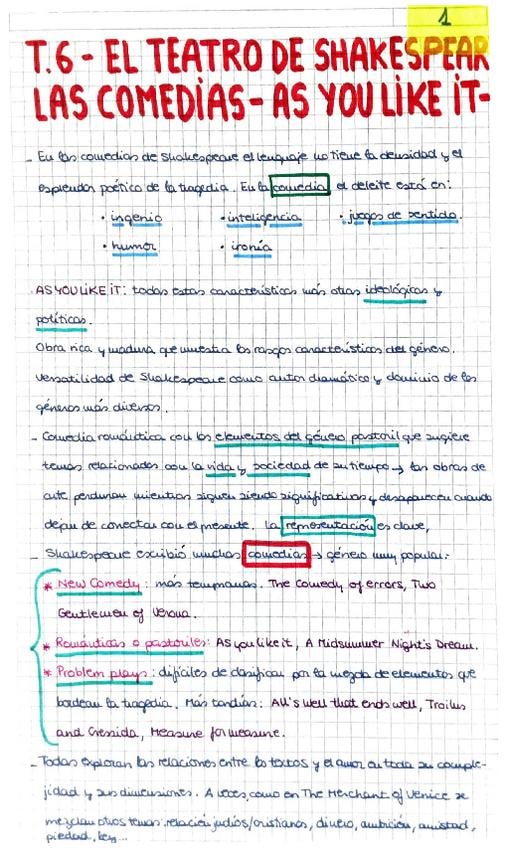 1
T.6 - EL TEATRO DE SHAKESPEAR
LAS COMEDIAS - AS YOU LIKE IT -
- En las comedias de Shakespeare el lenguaje no tiene la densidad y el
esplendor poético de la tragedia. En la comedia el deleite está en:
• ingenio • inteligencia • juegos de sentido.
• humor • ironía
. AS YOU LIKE IT: todas estas características más otras ideológicas y
políticas.
Obra rica y madura que muestra los rasgos característicos del género.
Versatilidad de Shakespeare como autor dramático y dominio de los
géneros más diversos.
- Comedia romántica con los elementos del género pastoril que sugiere
temas relacionados con la vida y sociedad de su tiempo → las obras de
arte perduran mientras siguen siendo significativas y desaparecen cuando
dejan de conectar con el presente. La representación es clave,
- Shakespeare escribió muchas comedias → género muy popular:
* New Comedy: más tempranas. The Comedy of errors, Two
Gentlemen of Verona.
* Románticas o pastoriles: As you like it, A Midsummer Night's Dream.
* Problem plays: difíciles de clasificar por la mezcla de elementos que
bordean la tragedia. Más tardías: All's well that ends well, Troilus
and Cressida, Measure for measure.
- Todas exploran las relaciones entre los textos y el amor en toda su comple-
jidad y sus dimensiones. A veces, como en The Merchant of Venice se
mezclan otros temas: relación judíos/cristianos, dinero, ambición, amistad,
piedad, ley...